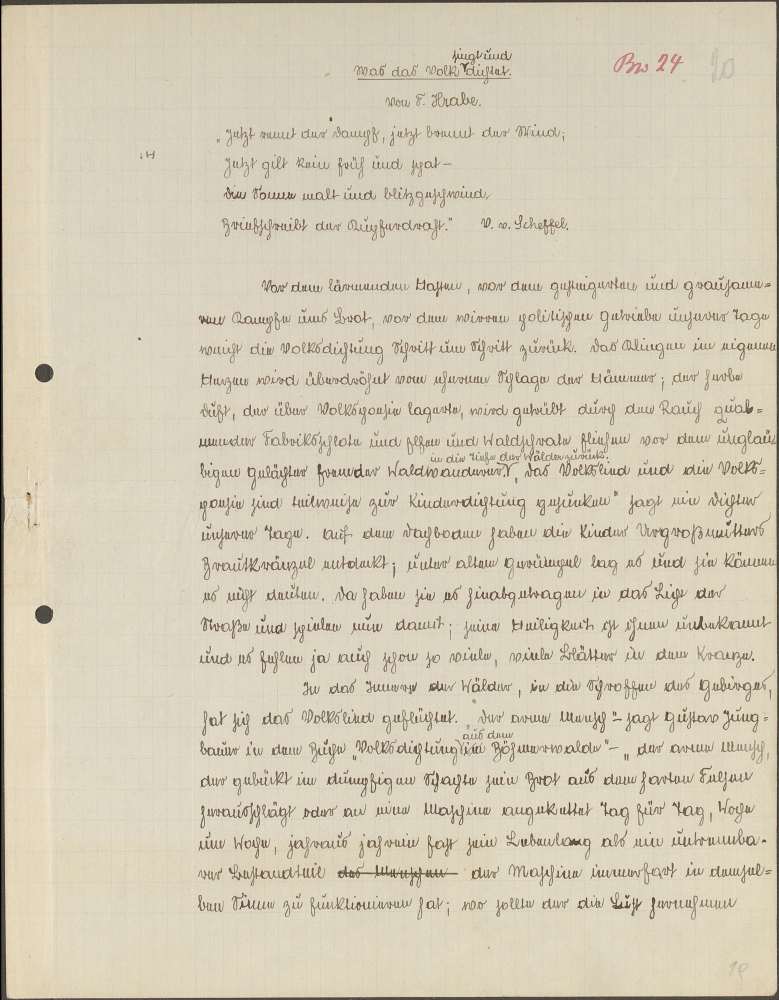 singt und
Was das Volk dichtet.
Bw 24
20
von F. Hrabe.
„Jetzt rennt der Dampf, jetzt brennt der Wind,
Jetzt gilt kein früh und spat –
Die Sonne malt und blitzgeschwind
Briefschreibt der Kupferdraht.“ V. v. Scheffel.
Vor dem lärmenden Hasten, vor dem gesteigerten und grausame=
ren Kampfe ums Brot, vor dem wirren politischen Getriebe unserer Tage
weicht die Volksdichtung Schritt um Schritt zurück. Das Klingen im eigenen
Herzen wird überdröhnt vom ehernen Schlage der Hämmer; der herbe
Duft, der über Volkspoesie lagerte, wird getrübt durch den Rauch qual=
mender Fabriksschlote und Elfen und Waldschrate fliehen vor dem ungläu
in die Tiefe der Wälder zurück.
bigen Gelächter fremder Waldwanderer. „Das Volkslied und die Volks=
poesie sind teilweise zur Kinderdichtung gesunken“ sagt ein Dichter
unserer Tage. Auf dem Dachboden haben die Kinder Urgroßmutters
Brautkränzel entdeckt; unter altem Gerümpel lag es und sie können
es nicht deuten. Da haben sie es hinabgetragen in das Licht der
Straße und spielen nun damit; seine Heiligkeit ist ihnen unbekannt
und es fehlen ja auch schon so viele, viele Blätter in dem Kranze.
In das Innere der Wälder, in die Schroffen des Gebirges,
hat sich das Volkslied geflüchtet. „Der arme Mensch – sagt Gustav Jung=
aus dem
bauer in dem Buche „Volksdichtung Böhmerwalde“ – „der arme Mensch,
der gebückt im dumpfigen Schachte sein Brot aus dem harten Felsen
herausschlägt oder an eine Maschine angekettet Tag für Tag, Woche
um Woche, jahraus jahrein fast sein Lebenlang als ein untrennba=
rer Bestandteil des Menschen der Maschine immerfort in demsel=
ben Sinne zu funktionieren hat; wo sollte der die Lust hernehmen